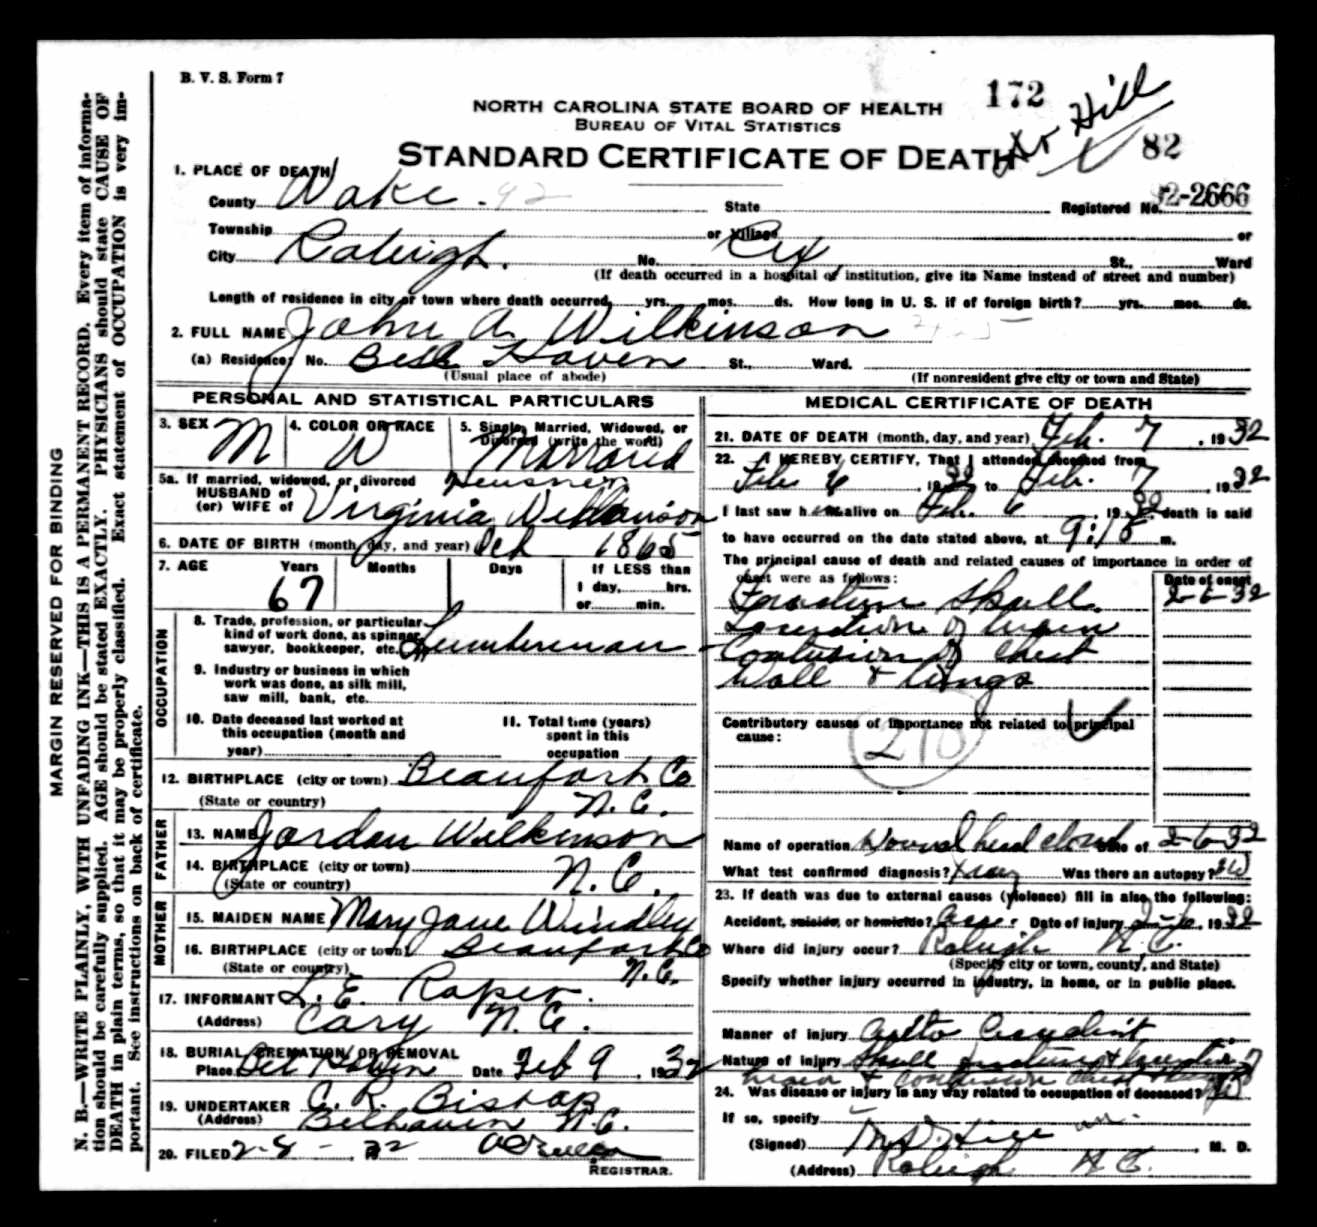 B. V. S. Form 7
172
NORTH CAROLINA STATE BOARD OF HEALTH
BUREAU OF VITAL STATISTICS
STANDARD CERTIFICATE OF DEATH
Dr Hill
82
1. PLACE OF DEATH
County Wake. 92 State Registered No. 32-2666
Township or Village or
City Raleigh. No. Rex St., Ward
(If death occurred in a hospital or institution, give its Name instead of street and number)
Length of residence in city or town where death occurred yrs. mos. ds. How long in U. S. if of foreign birth? yrs. mos. ds.
2. FULL NAME John A. Wilkinson
(a) Residence: No. Bell Haven St., Ward.
(Usual place of abode) (If nonresident give city or town and State)
PERSONAL AND STATISTICAL PARTICULARS
3. SEX M
4. COLOR OR RACE W
5. Single, Married, Widowed, or Divorced (write the word) Married
5a. If married, widowed, or divorced
HUSBAND of
(or) WIFE of Virginia Heusner Wilkinson
6. DATE OF BIRTH (month, day, and year) Oct 1865
7. AGE Years Months Days If LESS than
1 day, hrs.
or min.
67
OCCUPATION
8. Trade, profession, or particular
kind of work done, as spinner,
sawyer, bookkeeper, etc. Lumberman
9. Industry or business in which
work was done, as silk mill,
saw mill, bank, etc.
10. Date deceased last worked at
this occupation (month and
year)
11. Total time (years)
spent in this
occupation
12. BIRTHPLACE (city or town) Beaufort Co
(State or country) N. C.
FATHER
13. NAME Jordan Wilkinson
14. BIRTHPLACE (city or town)
(State or country) N. C.
MOTHER
15. MAIDEN NAME Mary Jane Windley
16. BIRTHPLACE (city or town) Beaufort Co
(State or country) N. C.
17. INFORMANT L. E. Raper.
(Address) Cary N. C.
18. BURIAL, CREMATION, OR REMOVAL
Place Bell Haven Date Feb 9, 1932
19. UNDERTAKER C. R. Bishop
(Address) Belhaven N. C.
20. FILED 2-8-32
REGISTRAR.
MEDICAL CERTIFICATE OF DEATH
21. DATE OF DEATH (month, day, and year) Feb. 7, 1932
22. I HEREBY CERTIFY, That I attended deceased from
Feb 6, 1932 to Feb. 7, 1932
I last saw h im alive on Feb. 6, 1932 death is said
to have occurred on the date stated above, at 9:15 m.
The principal cause of death and related causes of importance in order of
onset were as follows:
Date of onset
Fracture Skull. 2-6-32
Laceration of brain
Contusion of Chest
Wall & lungs
Contributory causes of importance not related to principal
cause:
210
Name of operation Wound head closed Date of 2-6-32
What test confirmed diagnosis? Xray Was there an autopsy? no
23. If death was due to external causes (violence) fill in also the following:
Accident, suicide, or homicide? Date of injury 2-6, 1932
Where did injury occur? Raleigh N. C.
(Specify city or town, county, and State)
Specify whether injury occurred in industry, in home, or in public place.
Manner of injury Auto Accident
Nature of injury Skull fracture & laceration of
brain & contusion chest & lungs
24. Was disease or injury in any way related to occupation of deceased? no
If so, specify
(Signed) M. D. Hill, M. D.
(Address) Raleigh N. C.
MARGIN RESERVED FOR BINDING
N. B.—WRITE PLAINLY, WITH UNFADING INK—THIS IS A PERMANENT RECORD. Every item of informa-
tion should be carefully supplied. AGE should be stated EXACTLY. PHYSICIANS should state CAUSE OF
DEATH in plain terms, so that it may be properly classified. Exact statement of OCCUPATION is very im-
portant. See instructions on back of certificate.